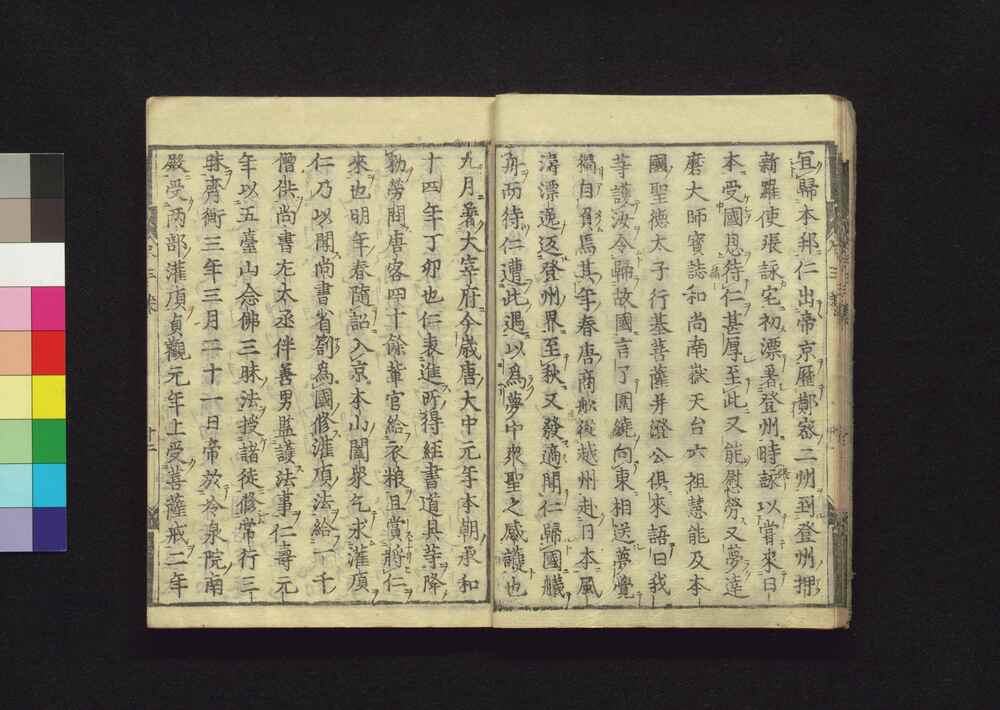 宜歸本邦仁出帝京歷鄭密二州到登州押
新羅使張詠宅初漂著登州時詠以嘗來日
本受國恩待仁甚厚至此又能慰勞又夢達
磨大師寶誌和尚南嶽天台六祖慧能及本
國聖德太子行基菩薩并澄公俱來語曰我
等護汝今歸故國言了圍繞向東相送夢覺
獨自負焉其年春唐商舩從越州赴日本風
濤漂逸返登州界至秋又發適聞仁歸國艤
舟而待仁遭此遇以為夢中衆聖之感護也
九月著大宰府今歲唐大中元年本朝承和
十四年丁卯也仁表進所得經書道具等降
勑勞問唐客四十餘輩官給衣粮且賞將仁
來也明年春隨詔入京本山闔衆乞求灌頂
仁乃以聞尚書省劄為國修灌頂法給一千
僧供尚書左大丞伴善男監護法事仁壽元
年以五臺山念佛三昧法授諸徒修常行三
昧齊衡三年三月二十一日帝於冷泉院南
殿受兩部灌頂貞觀元年上受菩薩戒二年